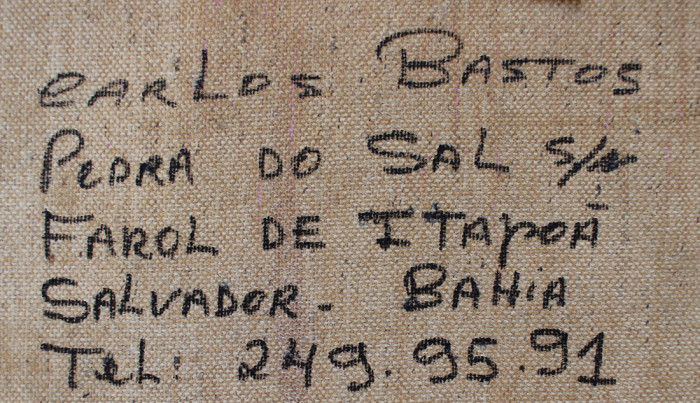 CARLOS BASTOS
PEDRA DO SAL S/n
FAROL DE ITAPOÃ
SALVADOR - BAHIA
TEL: 249.95.91